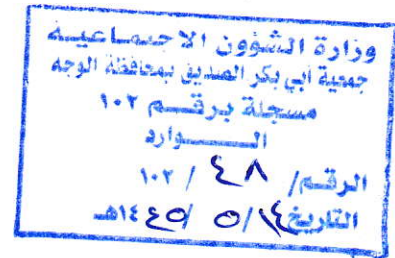 وزارة الشؤون الاجتماعية
جمعية أبي بكر الصديق بمحافظة الوجه
مسجلة برقم ١٠٢
الوارد
الرقم/ ٤٨ / ١٠٢
التاريخ ١٤/ ٥/ ١٤٤٥هـ